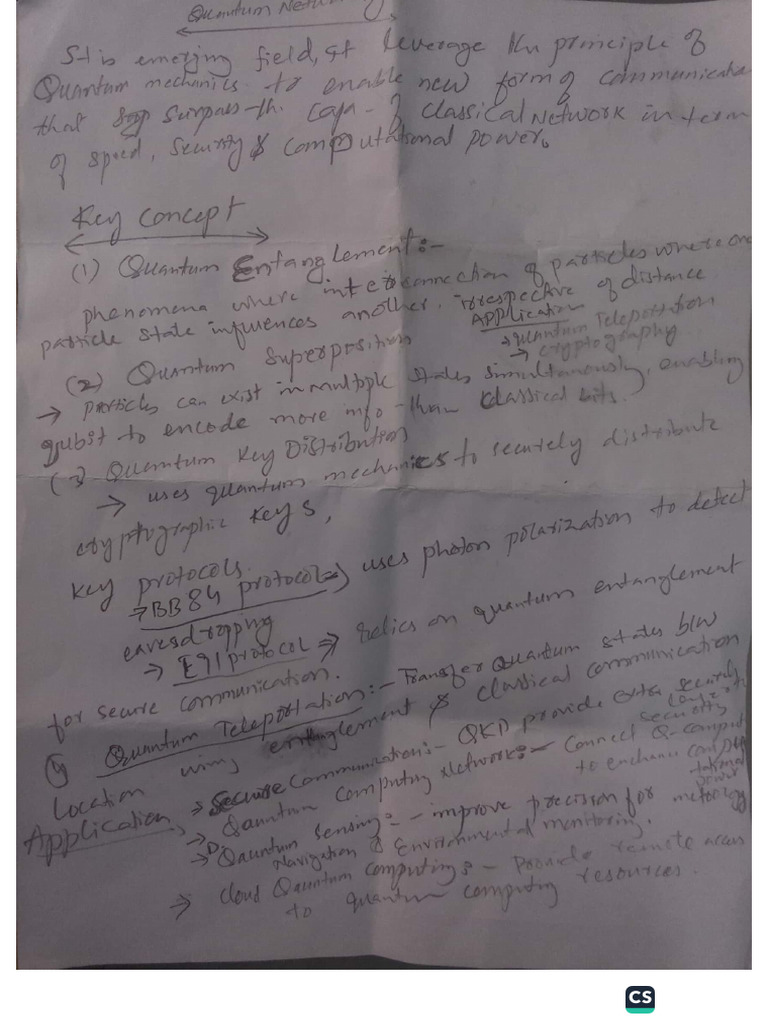 Quantum Netw
It is emerging field, It leverage the principle of
Quantum mechanics to enable new form of communicatio
that surpass th. capa- of classical Network in term
of speed, security & computational power.
Key Concept
(1) Quantum Entanglement:-
phenomena where interconnection of particles where one
particle state influences another. irrespective of distance
Application
→ quantum Teleportation
→ cryptography
(2) Quantum Superposition
→ particles can exist in multiple states simultaneously, enabling
qubit to encode more info than classical bits.
(3) Quantum Key Distribution
→ uses quantum mechanics to securely distribute
cryptographic keys,
key protocols.
→ BB84 protocol ⇒ uses photon polarization to detect
eavesdropping
→ E91 protocol ⇒ relies on quantum entanglement
for secure communication.
Quantum Teleportation:- Transfer Quantum states b/w
Location using entanglement & classical communication
Application → Secure Communication:- QKD provide extra security
→ Qauntum Computing Network:- Connect Q-comput
to enchance compu
tational
power
→ Qauntum Sensing:- improve precision for metology
Navigation & Environmental monitoring.
⇒ Cloud Qauntum Computing:- Provide remote access
to quantum computing resources.
CS